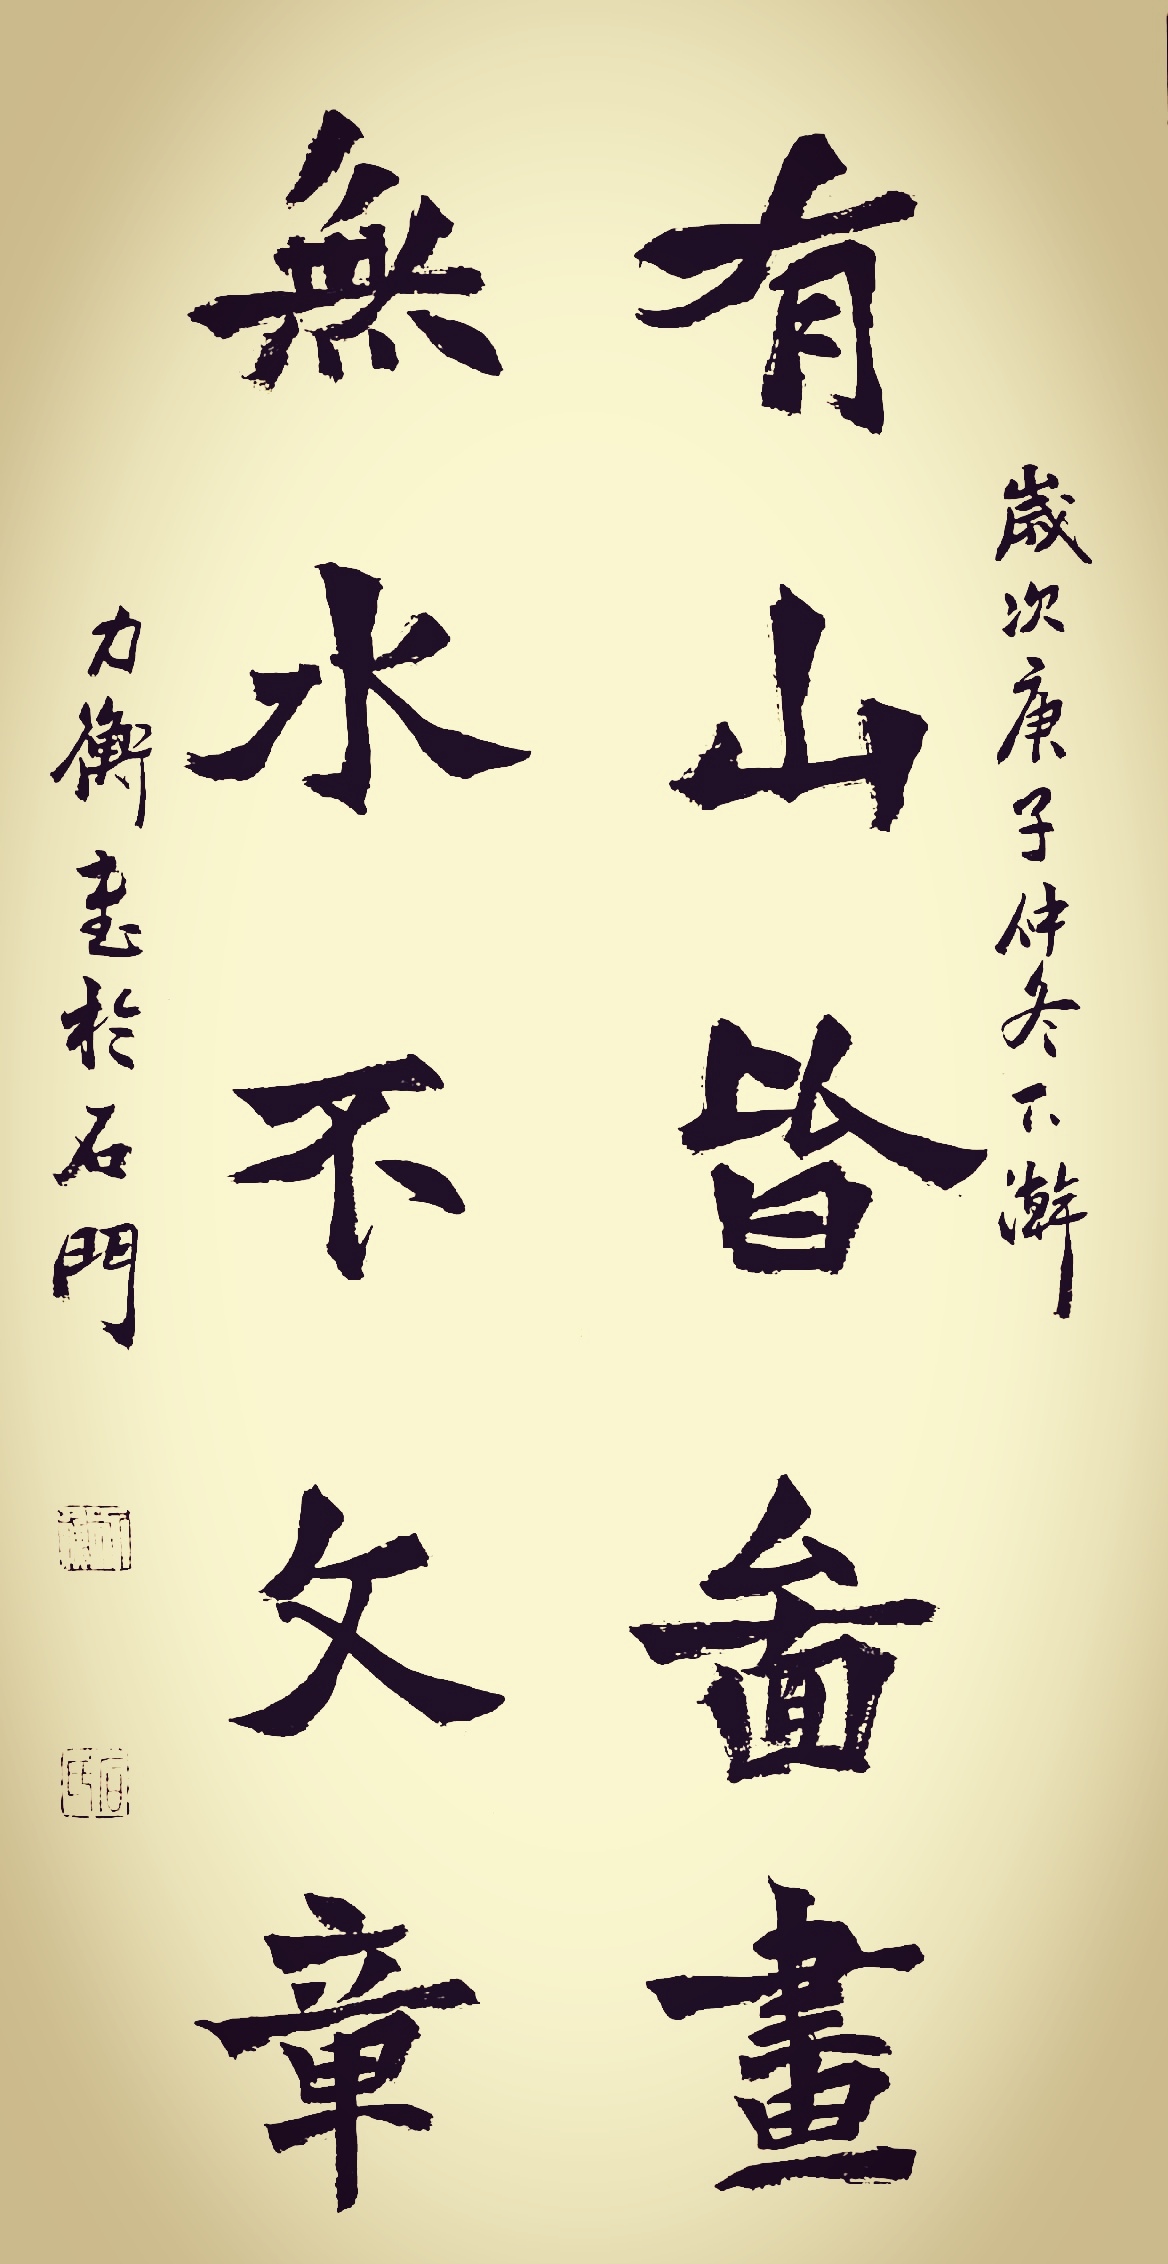 歲次庚子仲冬下澣
有山皆畵畫
無水不文章
力衡書於石門